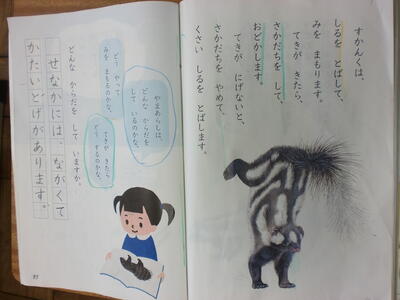 すかんくは、
しるを とばして、
みを まもります。
てきが きたら、
さかだちを して、
おどかします。
てきが にげないと、
さかだちを やめて、
くさい しるを とばします。
やまあらしは、
どんな からだを
して いるのかな。
どう やって
みを まもるのかな。
てきが きたら
どう するのかな。
どんな からだを して いますか。
せなかには、ながくて
かたいとげがあります。